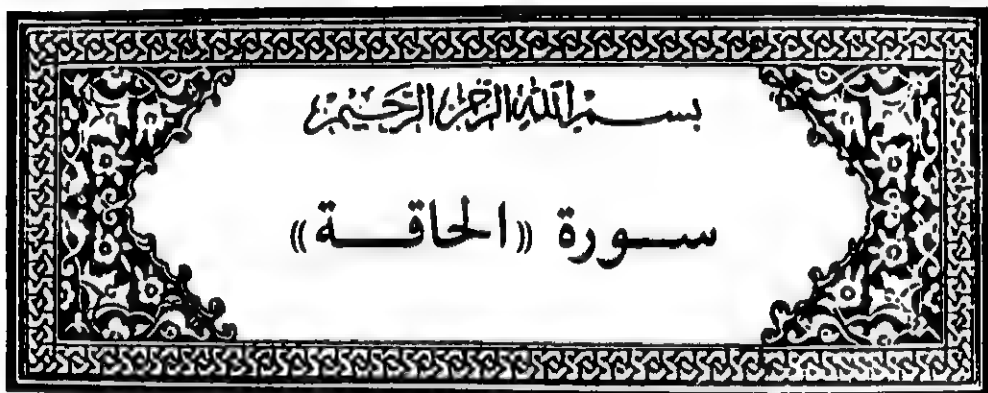 بسم الله الرحمن الرحيم
سورة «الحاقة»